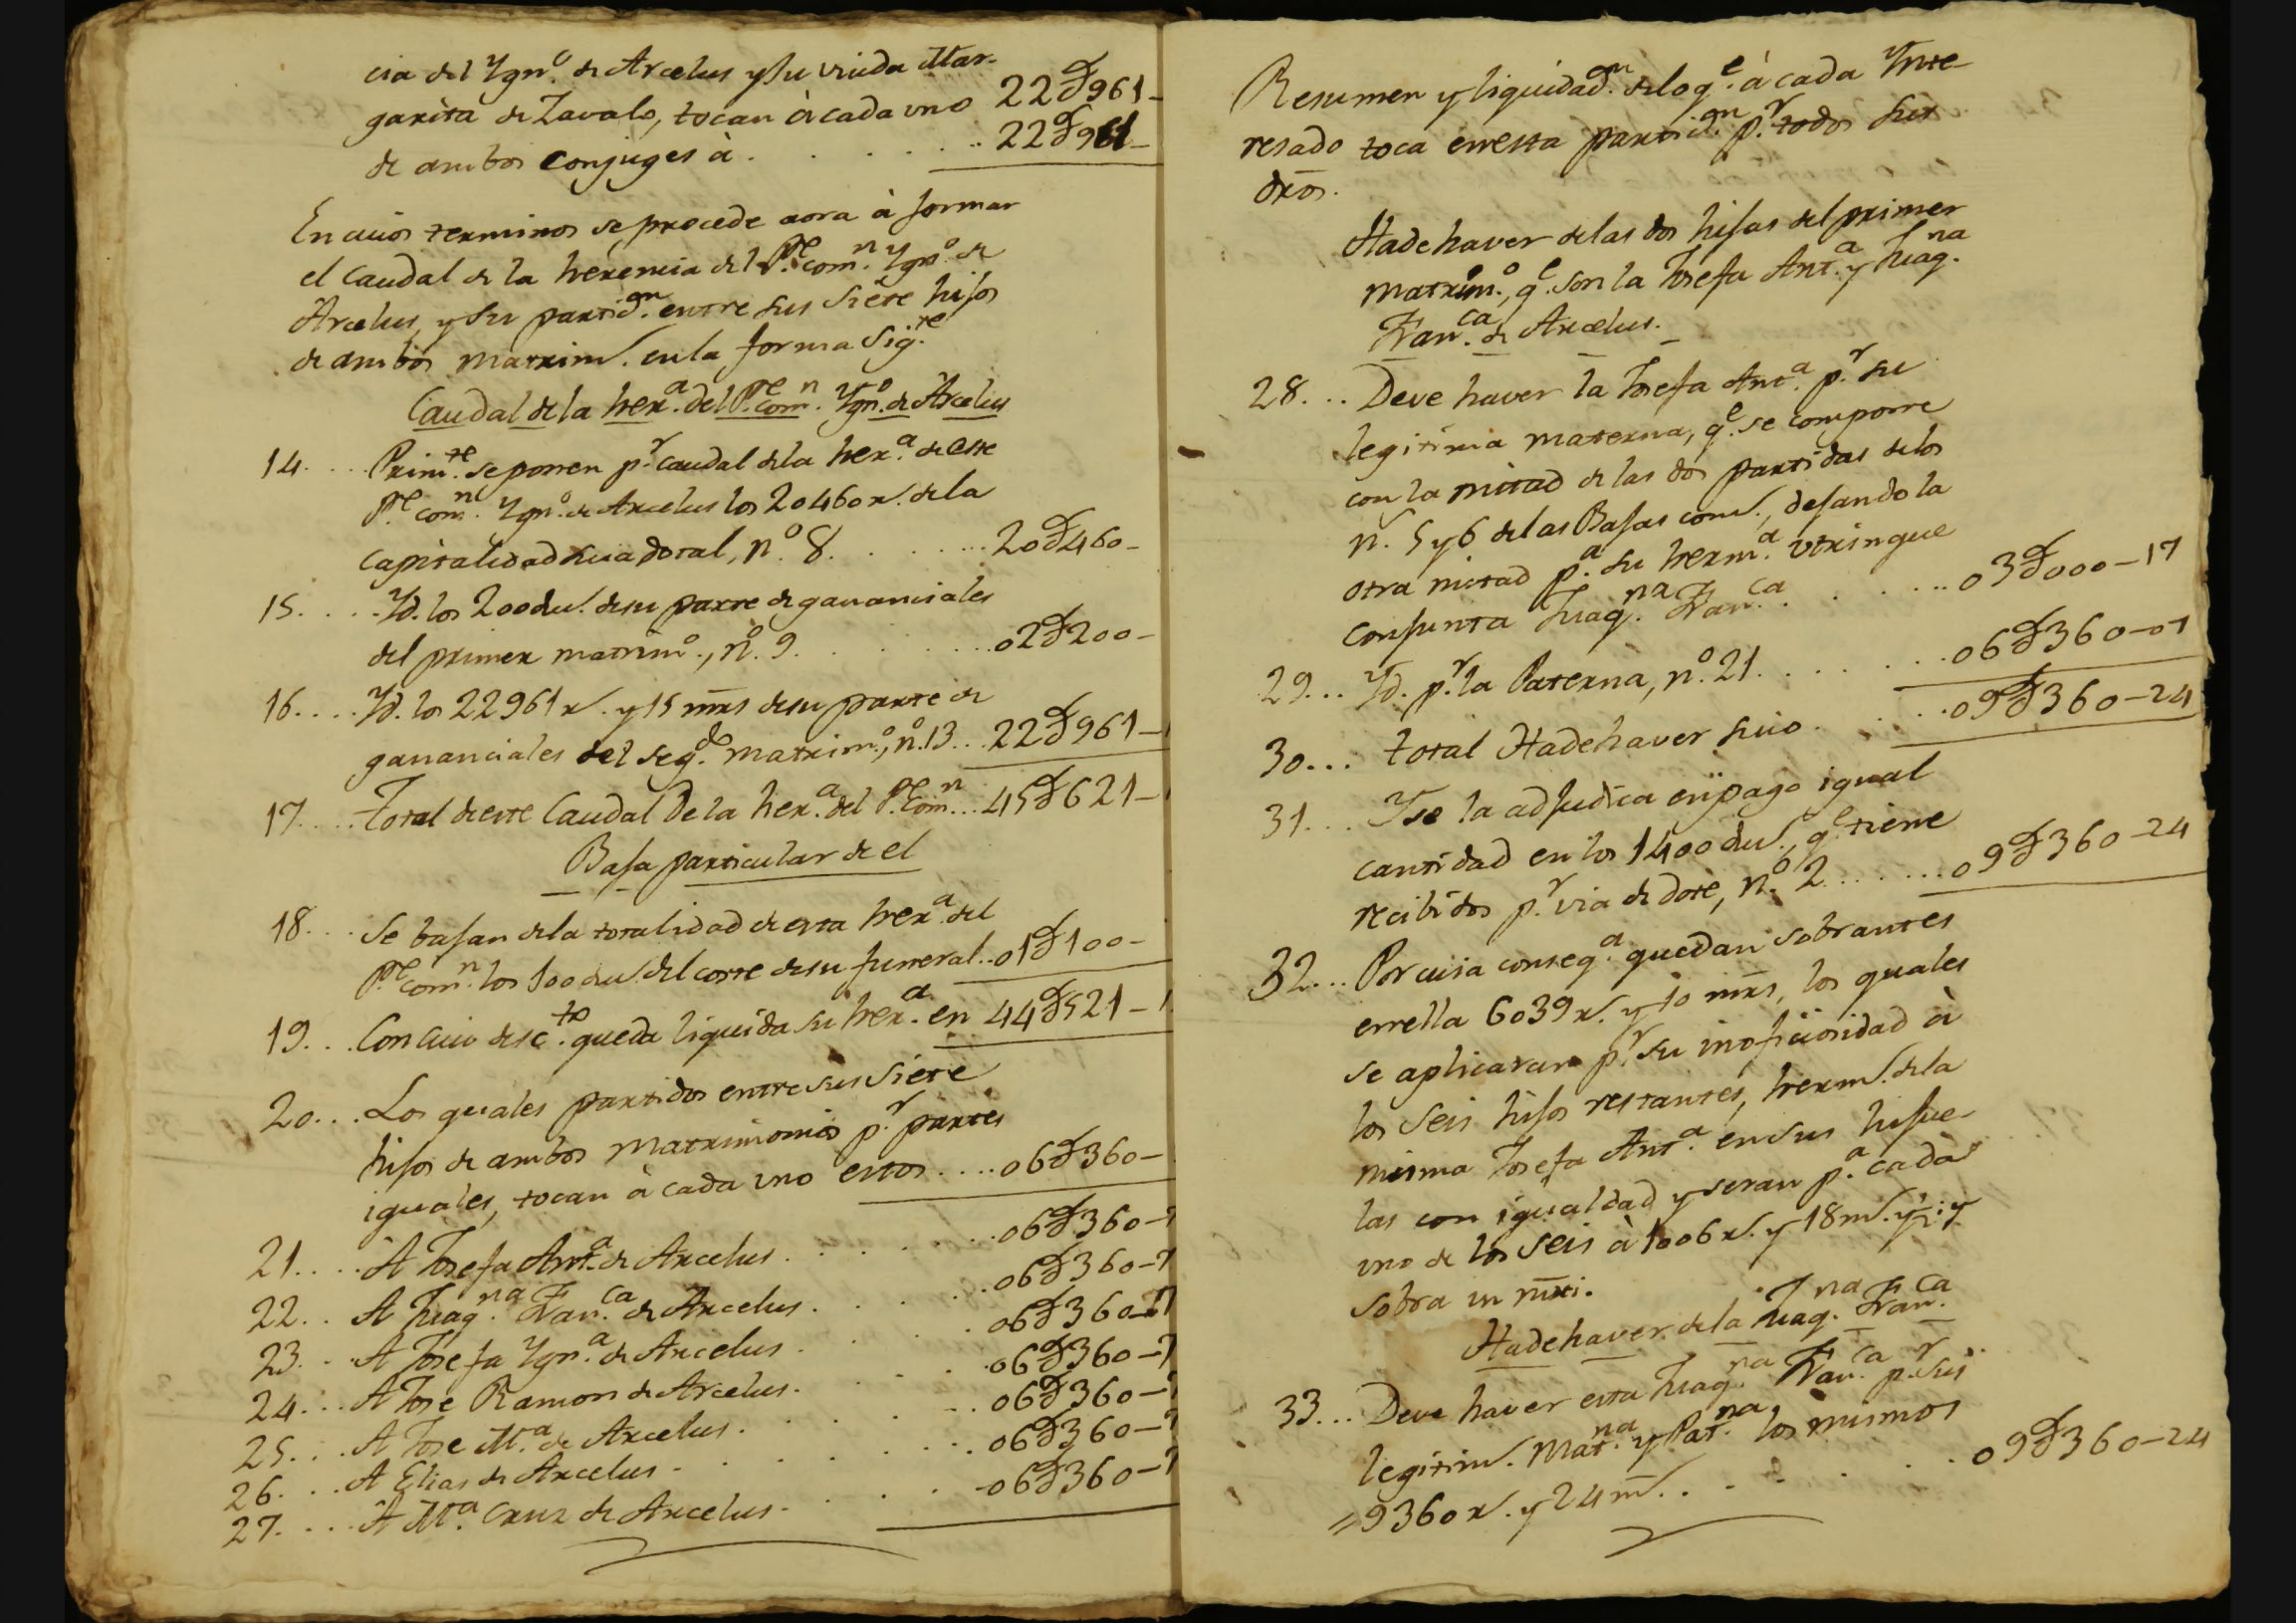 cia del Ygn.º de Arcelus y Su viuda Mar-
garita de Zavala, tocan à cada uno 22@961-
de ambos Conjuges à . . . . . . 22@961-
En cuios terminos se procede aora à formar
el Caudal de la herencia del P.e com.n Ygn.º de
Arcelus, y su partic.on entre sus Siete hijos
de ambos Matrim.s en la forma Sig.te
Caudal de la her.a del P.e Com.n Ygn.º de Arcelus
14. . . . Prim.te se ponen p.r caudal de la her.a de este
P.e com.n Ygn.º de Arcelus los 20460 r.s de la
Capitalidad sua dotal, n.º 8. . . . . . 20@460-
15. . . . Yd. los 200 du.s de su parte de gananciales
del primer matrim.º, n.º 9. . . . . . 02@200-
16. . . . Yd. los 22961 r.s y 15 mrs de su parte de
gananciales del seg.do matrim.º, n.º 13. . . 22@961-1
17. . . . Total de este Caudal De la her.a del P.e Com.n. . . 45@621-1
Baja particular de el
18. . . Se bajan de la totalidad de esta her.a del
P.e com.n los 100 du.s del coste de su funeral. . 01@100-
19. . . Con cuio desc.to queda liquida su her.a en 44@521-1
20. . . Los quales partidos entre sus Siete
hijos de ambos Matrimonios p.r partes
iguales, tocan à cada uno estos . . . . 06@360-
21. . . . A Josefa Ant.a de Arcelus . . . . . . 06@360-7
22. . A Juaq.na Fran.ca de Arcelus . . . . . 06@360-7
23. . . A Josefa Ygn.a de Arcelus . . . . . 06@360-7
24. . . A Jose Ramon de Arcelus . . . . . 06@360-7
25. . . A Jose M.a de Arcelus . . . . . . 06@360-7
26. . . A Elias de Arcelus . . . . . . . 06@360-7
27. . . . A M.a Cruz de Arcelus . . . . . 06@360-7
Resumen y liquidad.on de lo q.e à cada Ynte-
resado toca en esta partic.on p.r todos sus
dros.
Hade haver de las dos hijas del primer
matrim.º, q.e son la Josefa Ant.a y Juaq.na
Fran.ca de Arcelus.
28. . . Deve haver la Josefa Ant.a p.r su
legitima materna, q.e se compone
con la mitad de las dos partidas de los
n.s 5 y 6 de las Bajas com.s, dejando la
otra mitad p.a su herm.a utrinque
conjunta Juaq.na Fran.ca . . . . . 03@000-17
29. . . Yd. p.r la Paterna, n.º 21. . . . . . 06@360-07
30. . . total Hade haver suio. . . . 09@360-24
31. . . Y se la adjudica en pago igual
cantidad en los 1400 du.s, q.e tiene
recibidos p.r via de dote, n.º 2. . . . . . 09@360-24
32. . . Por cuia conseq.a quedan sobrantes
en ella 6039 r.s y 10 mrs, los quales
se aplicaran p.r su inoficiosidad à
los Seis hijos restantes, herm.s de la
misma Josefa Ant.a en sus hijue-
las con igualdad y seran p.a cada
uno de los Seis à 1006 r.s y 18 m.s y ½ y
sobra un mri.
Hade haver de la Juaq.na Fran.ca
33. . . Deve haver esta Juaq.na Fran.ca p.r sus
legitim.s Mat.na y Pat.na los mismos
=9360 r.s y 24 m.s . . . . . . . 09@360-24